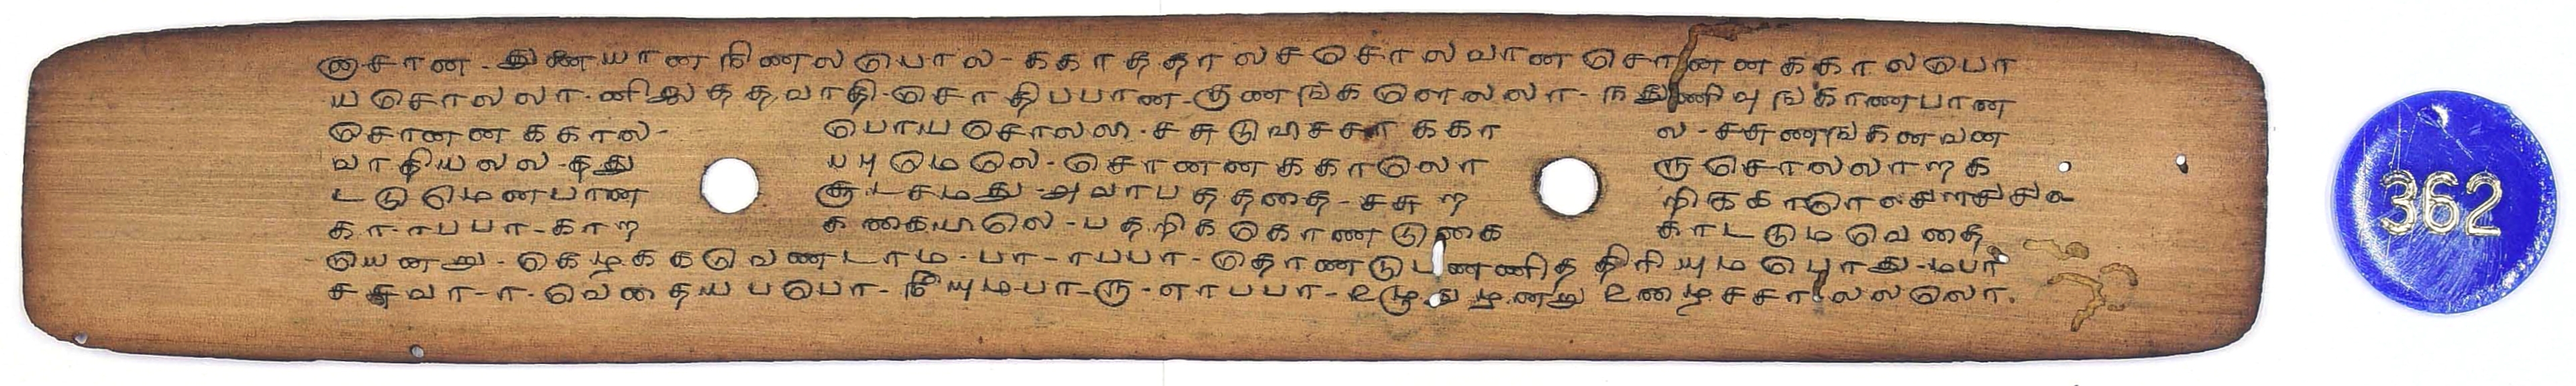 னசான-துணையான நிணலபொல-ககாததாலசசொலவான சொனனககாலபொ
யசொலலா-னிஆதத வாதி-சொதிபபான-குணஙகளெலலா-ந துணிவு ஙகாணபான
சொனனககால- பொயசொலலா-சசுடுவிசசா ககா ல-சசுணஙகனவண
வாதியலல-தது யுமெலெ-சொனனககாலொ ருசொலலாறக
டடுமெனபான கூடசமது-அவாபதததை-சசுற நிககா
கா-ாபபா-காற ககையிலெ-பதறிககொணடுகை காடடுமவெதை
யெனறு-கெழககவெணடாம-பா-ாபபா-தொணடுபணணித திரியுமபொது-மபா
சசுவா-ா-வெதையபபொ-நீயுமபா-ரு-ாாபபா-உழுதுழனறு உணழசசாலலலொ.
362